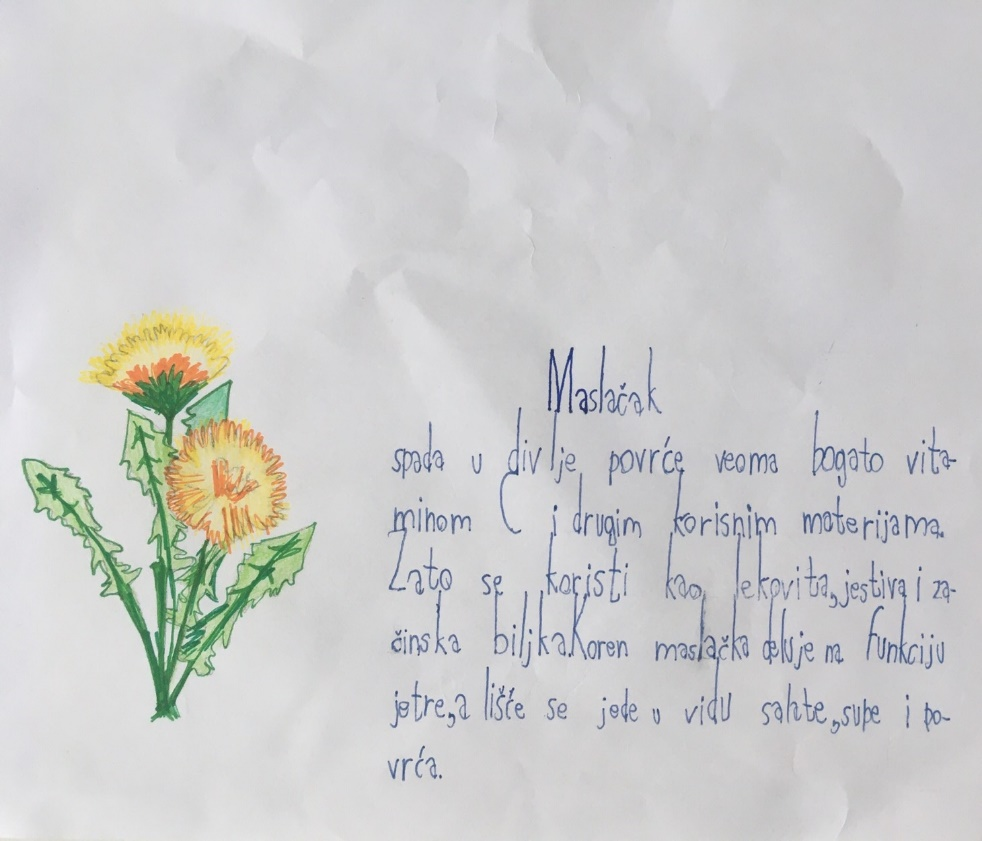 Maslačak
spada u divlje povrće veoma bogato vita-
minom C i drugim korisnim materijama.
Zato se koristi kao lekovita, jestiva i za-
činska biljka Koren maslačka deluje na funkciju
jetre, a lišće se jede u vidu salate, supe i po-
vrća.